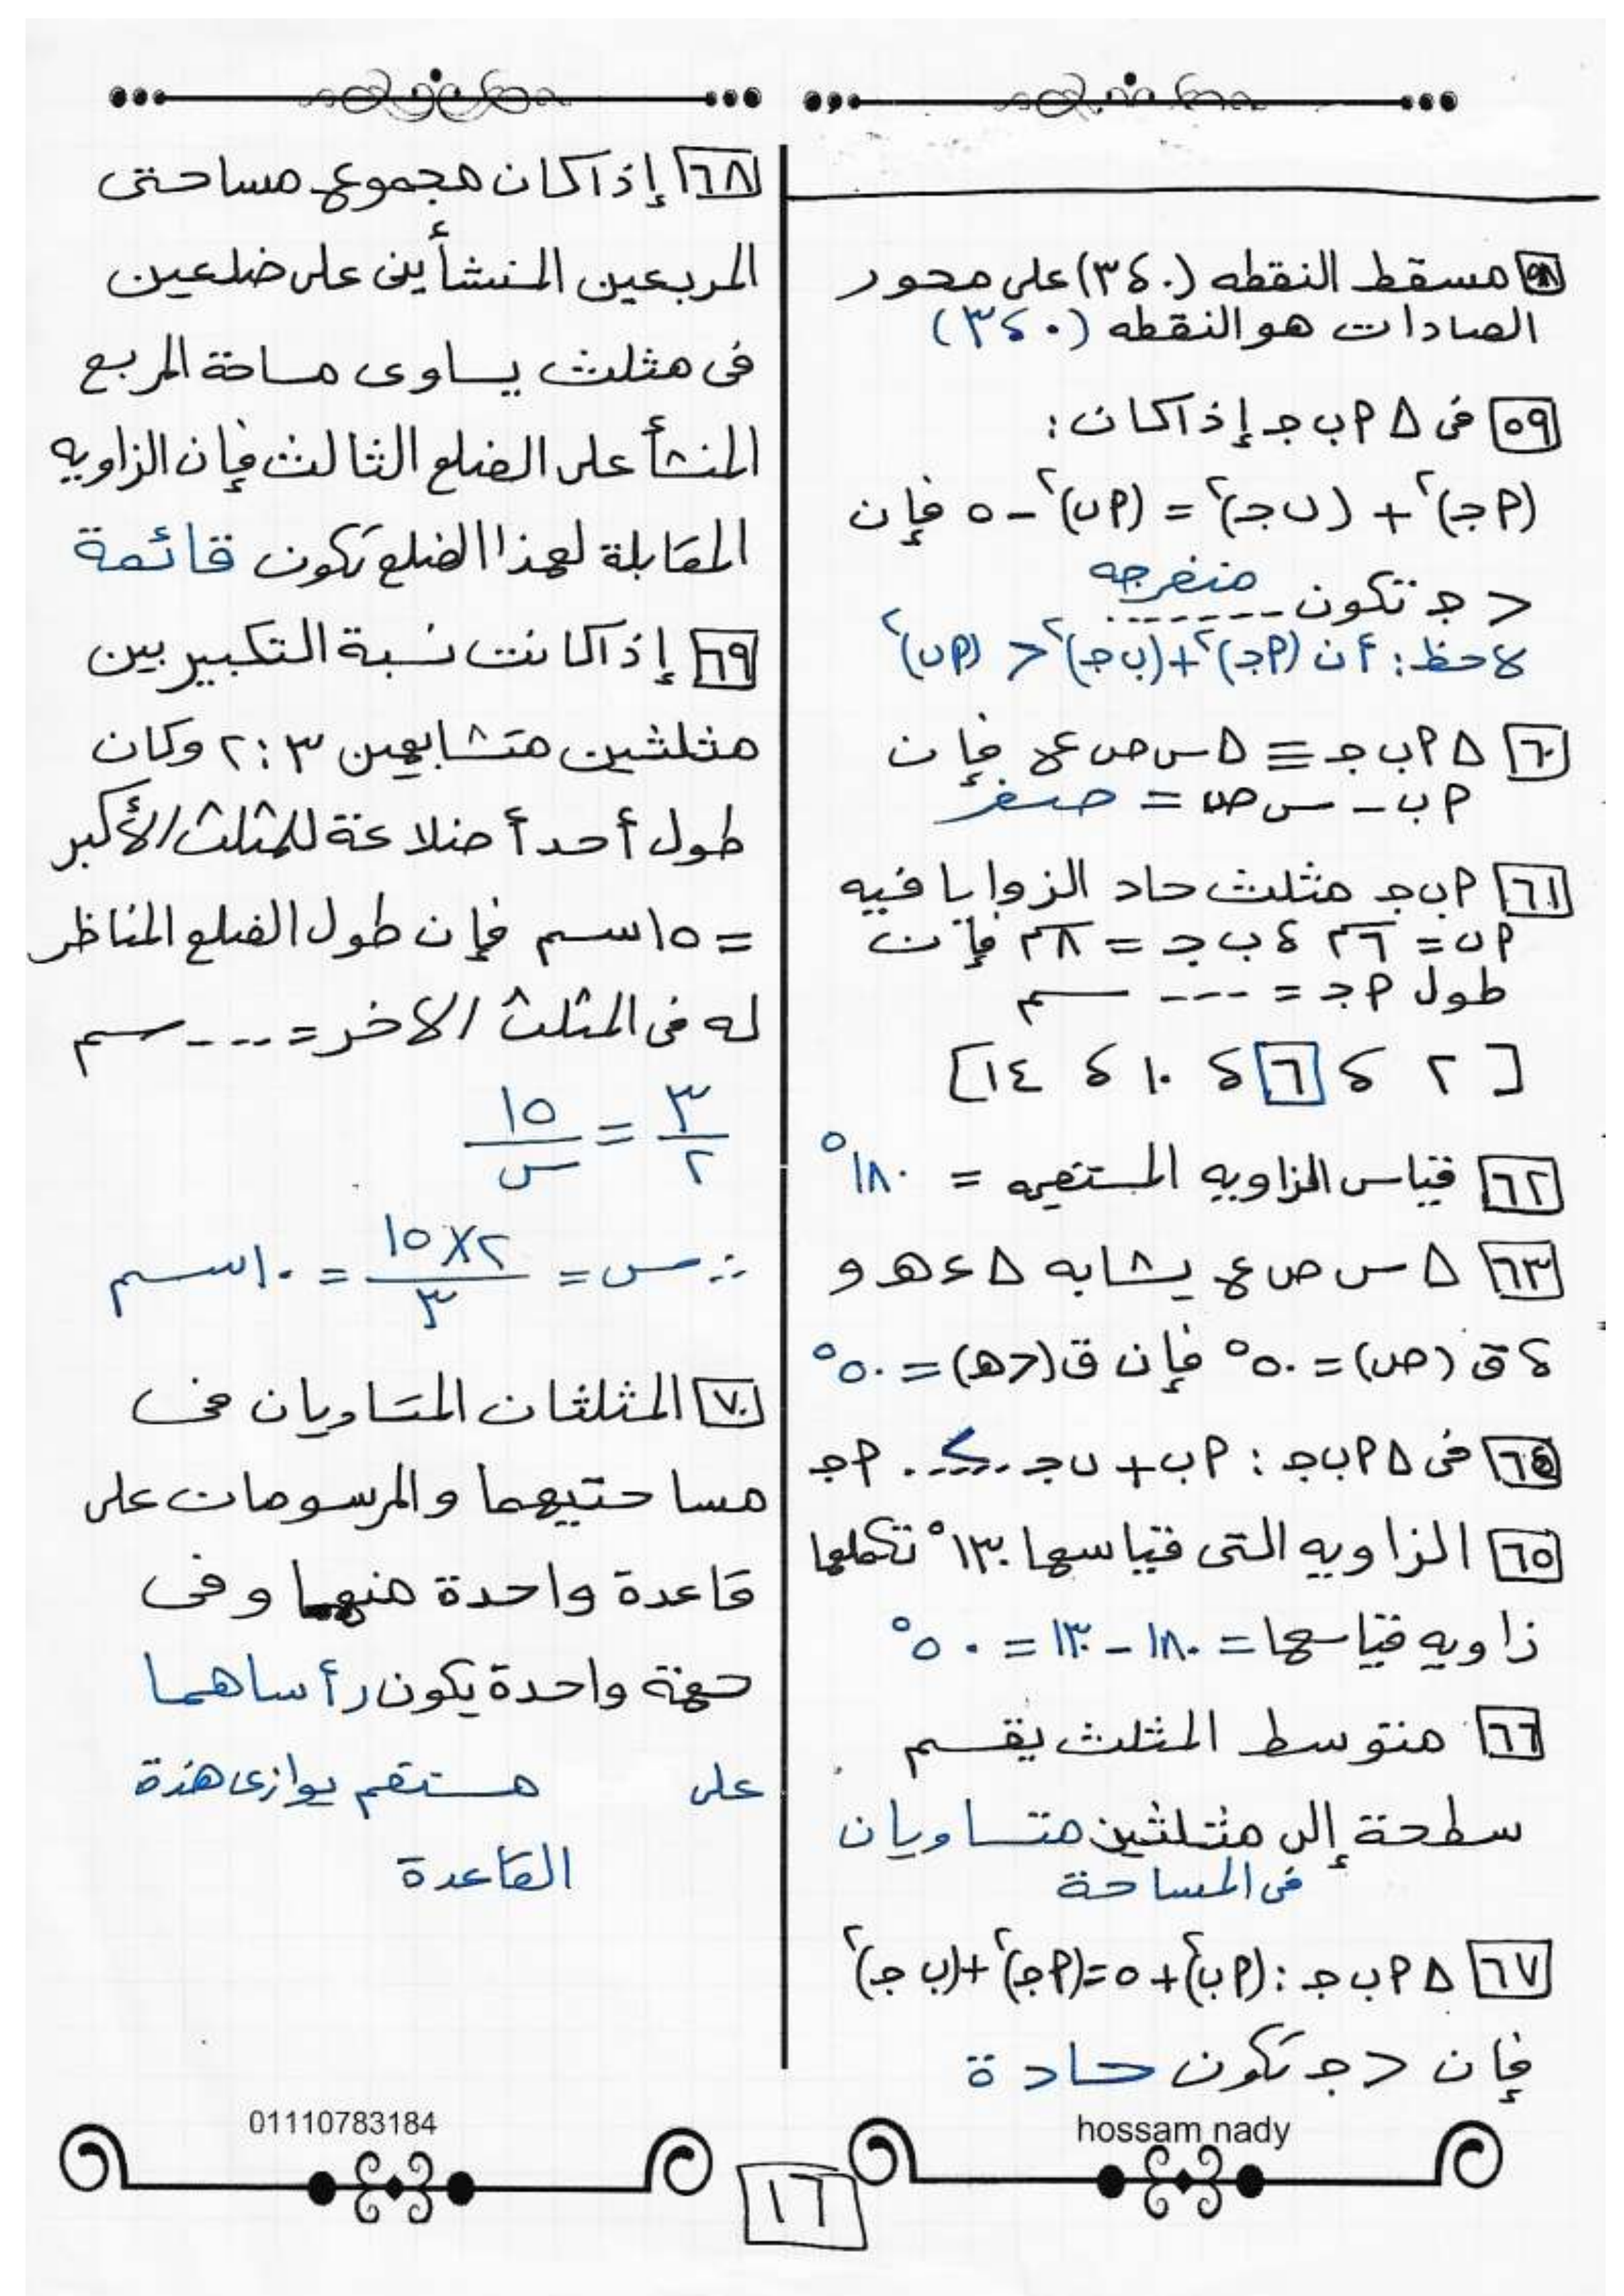 ٥٨ مسقط النقطه (٣،٠) على محور
الصادات هو النقطه (٣،٠)
٥٩ فى △ ٩ ب جـ إذا كان :
(٩جـ)٢ + (ب جـ)٢ = (٩ب)٢ - ٥ فإن
> جـ تكون منفرجه
لاحظ : أن (٩جـ)٢ + (ب جـ)٢ < (٩ب)٢
٦٠ △ ٩ ب جـ ≡ △ س ص ع فإن
٩ب - س ص = صفر
٦١ ٩ب جـ مثلث حاد الزوايا فيه
٩ب = ٦سم ، ب جـ = ٨سم فإن
طول ٩جـ = --- سم
[ ٢ ، ٦ ، ١٠ ، ١٤ ]
٦٢ قياس الزاويه المستقيمه = ١٨٠°
٦٣ △ س ص ع يشابه △ ء هـ و
، ق (ص) = ٥٠° فإن ق (>هـ) = ٥٠°
٦٤ فى △ ٩ب جـ : ٩ب + ب جـ ..>.. ٩جـ
٦٥ الزاويه التى قياسها ١٣٠° تكملها
زاويه قياسها = ١٨٠ - ١٣٠ = ٥٠°
٦٦ متوسط المثلث يقسم
سطحة إلى مثلثين متساويان
فى المساحة
٦٧ △ ٩ ب جـ : (٩ب)٢ + ٥ = (٩جـ)٢ + (ب جـ)٢
فإن > جـ تكون حادة
hossam nady
٦٨ إذا كان مجموع مساحتى
المربعين المنشأين على ضلعين
فى مثلث يساوى مساحة المربع
المنشأ على الضلع الثالث فإن الزاويه
المقابلة لهذا الضلع تكون قائمة
٦٩ إذا كانت نسبة التكبير بين
مثلثين متشابهين ٣ : ٢ وكان
طول أحد أضلاعة للمثلث الأكبر
= ١٥سم فإن طول الضلع المناظر
له فى المثلث الاخر = --- سم
٣/٢ = ١٥/س
∴ س = ٢×١٥/٣ = ١٠سم
٧٠ المثلثان المتساويان فى
مساحتيهما والمرسومان على
قاعدة واحدة منهما وفى
جهة واحدة يكون رأساهما
على مستقم يوازى هذة
القاعدة
01110783184
١٦